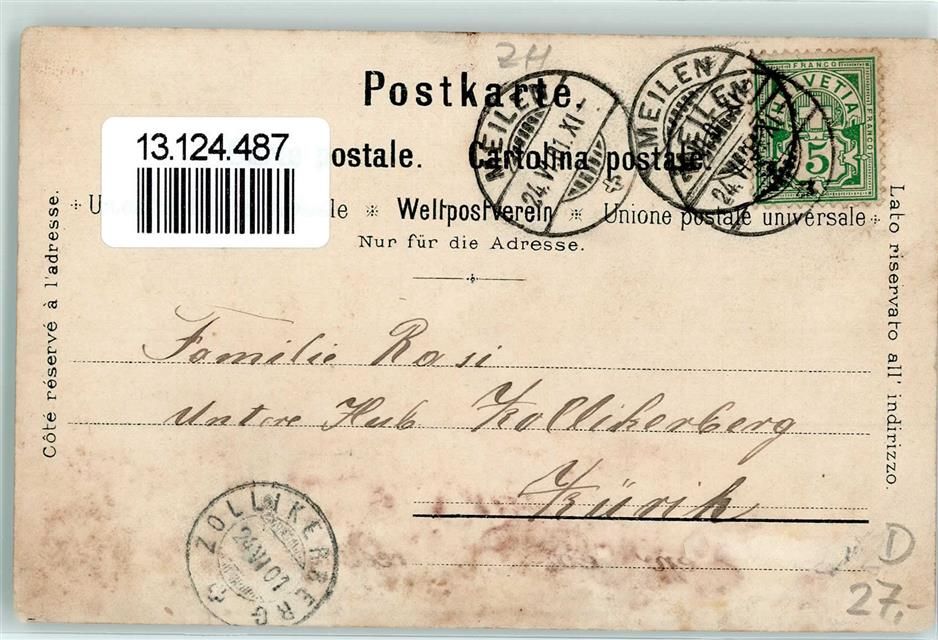 ZH
Postkarte.
13.124.487
ostale. Cartolina postale
U le * Weltpostverein * Unione postale universale
Nur für die Adresse.
Côté réservé à l'adresse.
Lato riservato all' indirizzo.
MEILEN 24.VI.01.XI
MEILEN
MEILEN 24.VI
FRANCO HELVETIA FRANCO 5
Familie Rosi
Untere Hub Zollikerberg
Zürich
ZOLLIKERBERG 24.VI.01
D
27.-